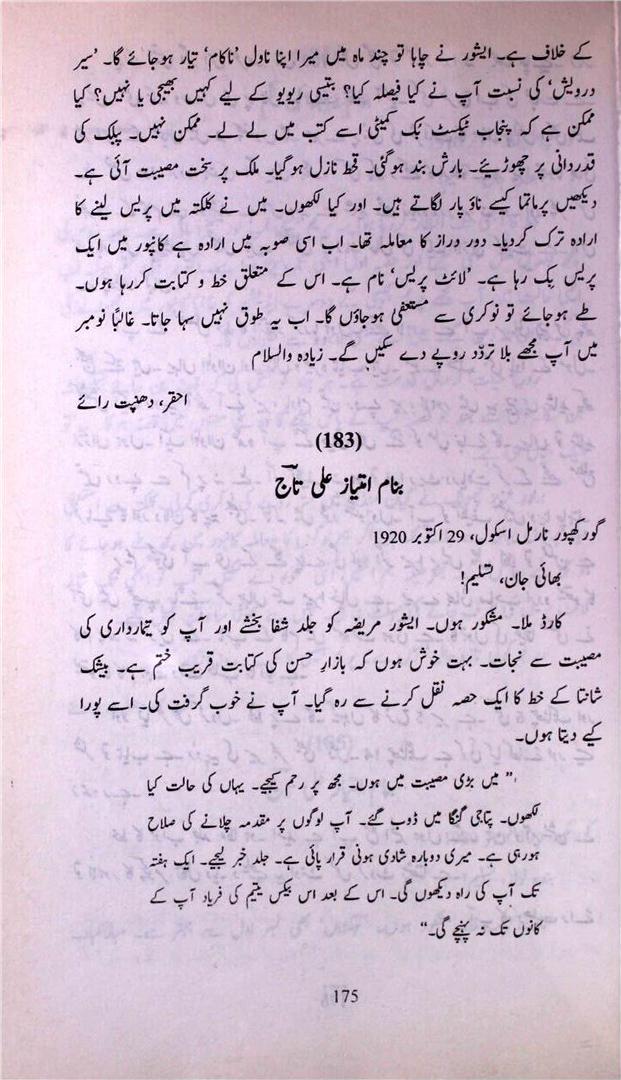 کے خلاف ہے۔ ایشور نے چاہا تو چند ماہ میں میرا اپنا ناول ’ناکام‘ تیار ہوجائے گا۔ ’سیر
درویش‘ کی نسبت آپ نے کیا فیصلہ کیا؟ بتیسی ریویو کے لیے کہیں بھیجی یا نہیں؟ کیا
ممکن ہے کہ پنجاب ٹیکسٹ بُک کمیٹی اسے کتب میں لے لے۔ ممکن نہیں۔ پبلک کی
قدردانی پر چھوڑیئے۔ بارش بند ہوگئی۔ قحط نازل ہوگیا۔ ملک پر سخت مصیبت آئی ہے۔
دیکھیں پرماتما کیسے ناؤ پار لگاتے ہیں۔ اور کیا لکھوں۔ میں نے کلکتہ میں پریس لینے کا
ارادہ ترک کردیا۔ دور دراز کا معاملہ تھا۔ اب اسی صوبہ میں ارادہ ہے کانپور میں ایک
پریس بِک رہا ہے۔ ’لائٹ پریس‘ نام ہے۔ اس کے متعلق خط و کتابت کررہا ہوں۔
طے ہوجائے تو نوکری سے مستعفیٰ ہوجاؤں گا۔ اب یہ طوق نہیں سہا جاتا۔ غالبًا نومبر
میں آپ مجھے بلا تردّد روپے دے سکیں گے۔ زیادہ والسلام
احقر، دھنپت رائے
(183)
بنام امتیاز علی تاؔج
گورکھپور نارمل اسکول، 29 اکتوبر 1920
بھائی جان، تسلیم!
کارڈ ملا۔ مشکور ہوں۔ ایشور مریضہ کو جلد شفا بخشے اور آپ کو تیمارداری کی
مصیبت سے نجات۔ بہت خوش ہوں کہ بازارِ حسن کی کتابت قریب ختم ہے۔ بیشک
شانتا کے خط کا ایک حصہ نقل کرنے سے رہ گیا۔ آپ نے خوب گرفت کی۔ اسے پورا
کیے دیتا ہوں۔
”میں بڑی مصیبت میں ہوں۔ مجھ پر رحم کیجیے۔ یہاں کی حالت کیا
لکھوں۔ پتاجی گنگا میں ڈوب گئے۔ آپ لوگوں پر مقدمہ چلانے کی صلاح
ہورہی ہے۔ میری دوبارہ شادی ہونی قرار پائی ہے۔ جلد خبر لیجیے۔ ایک ہفتہ
تک آپ کی راہ دیکھوں گی۔ اس کے بعد اس بیکس یتیم کی فریاد آپ کے
کانوں تک نہ پہنچے گی۔“
175